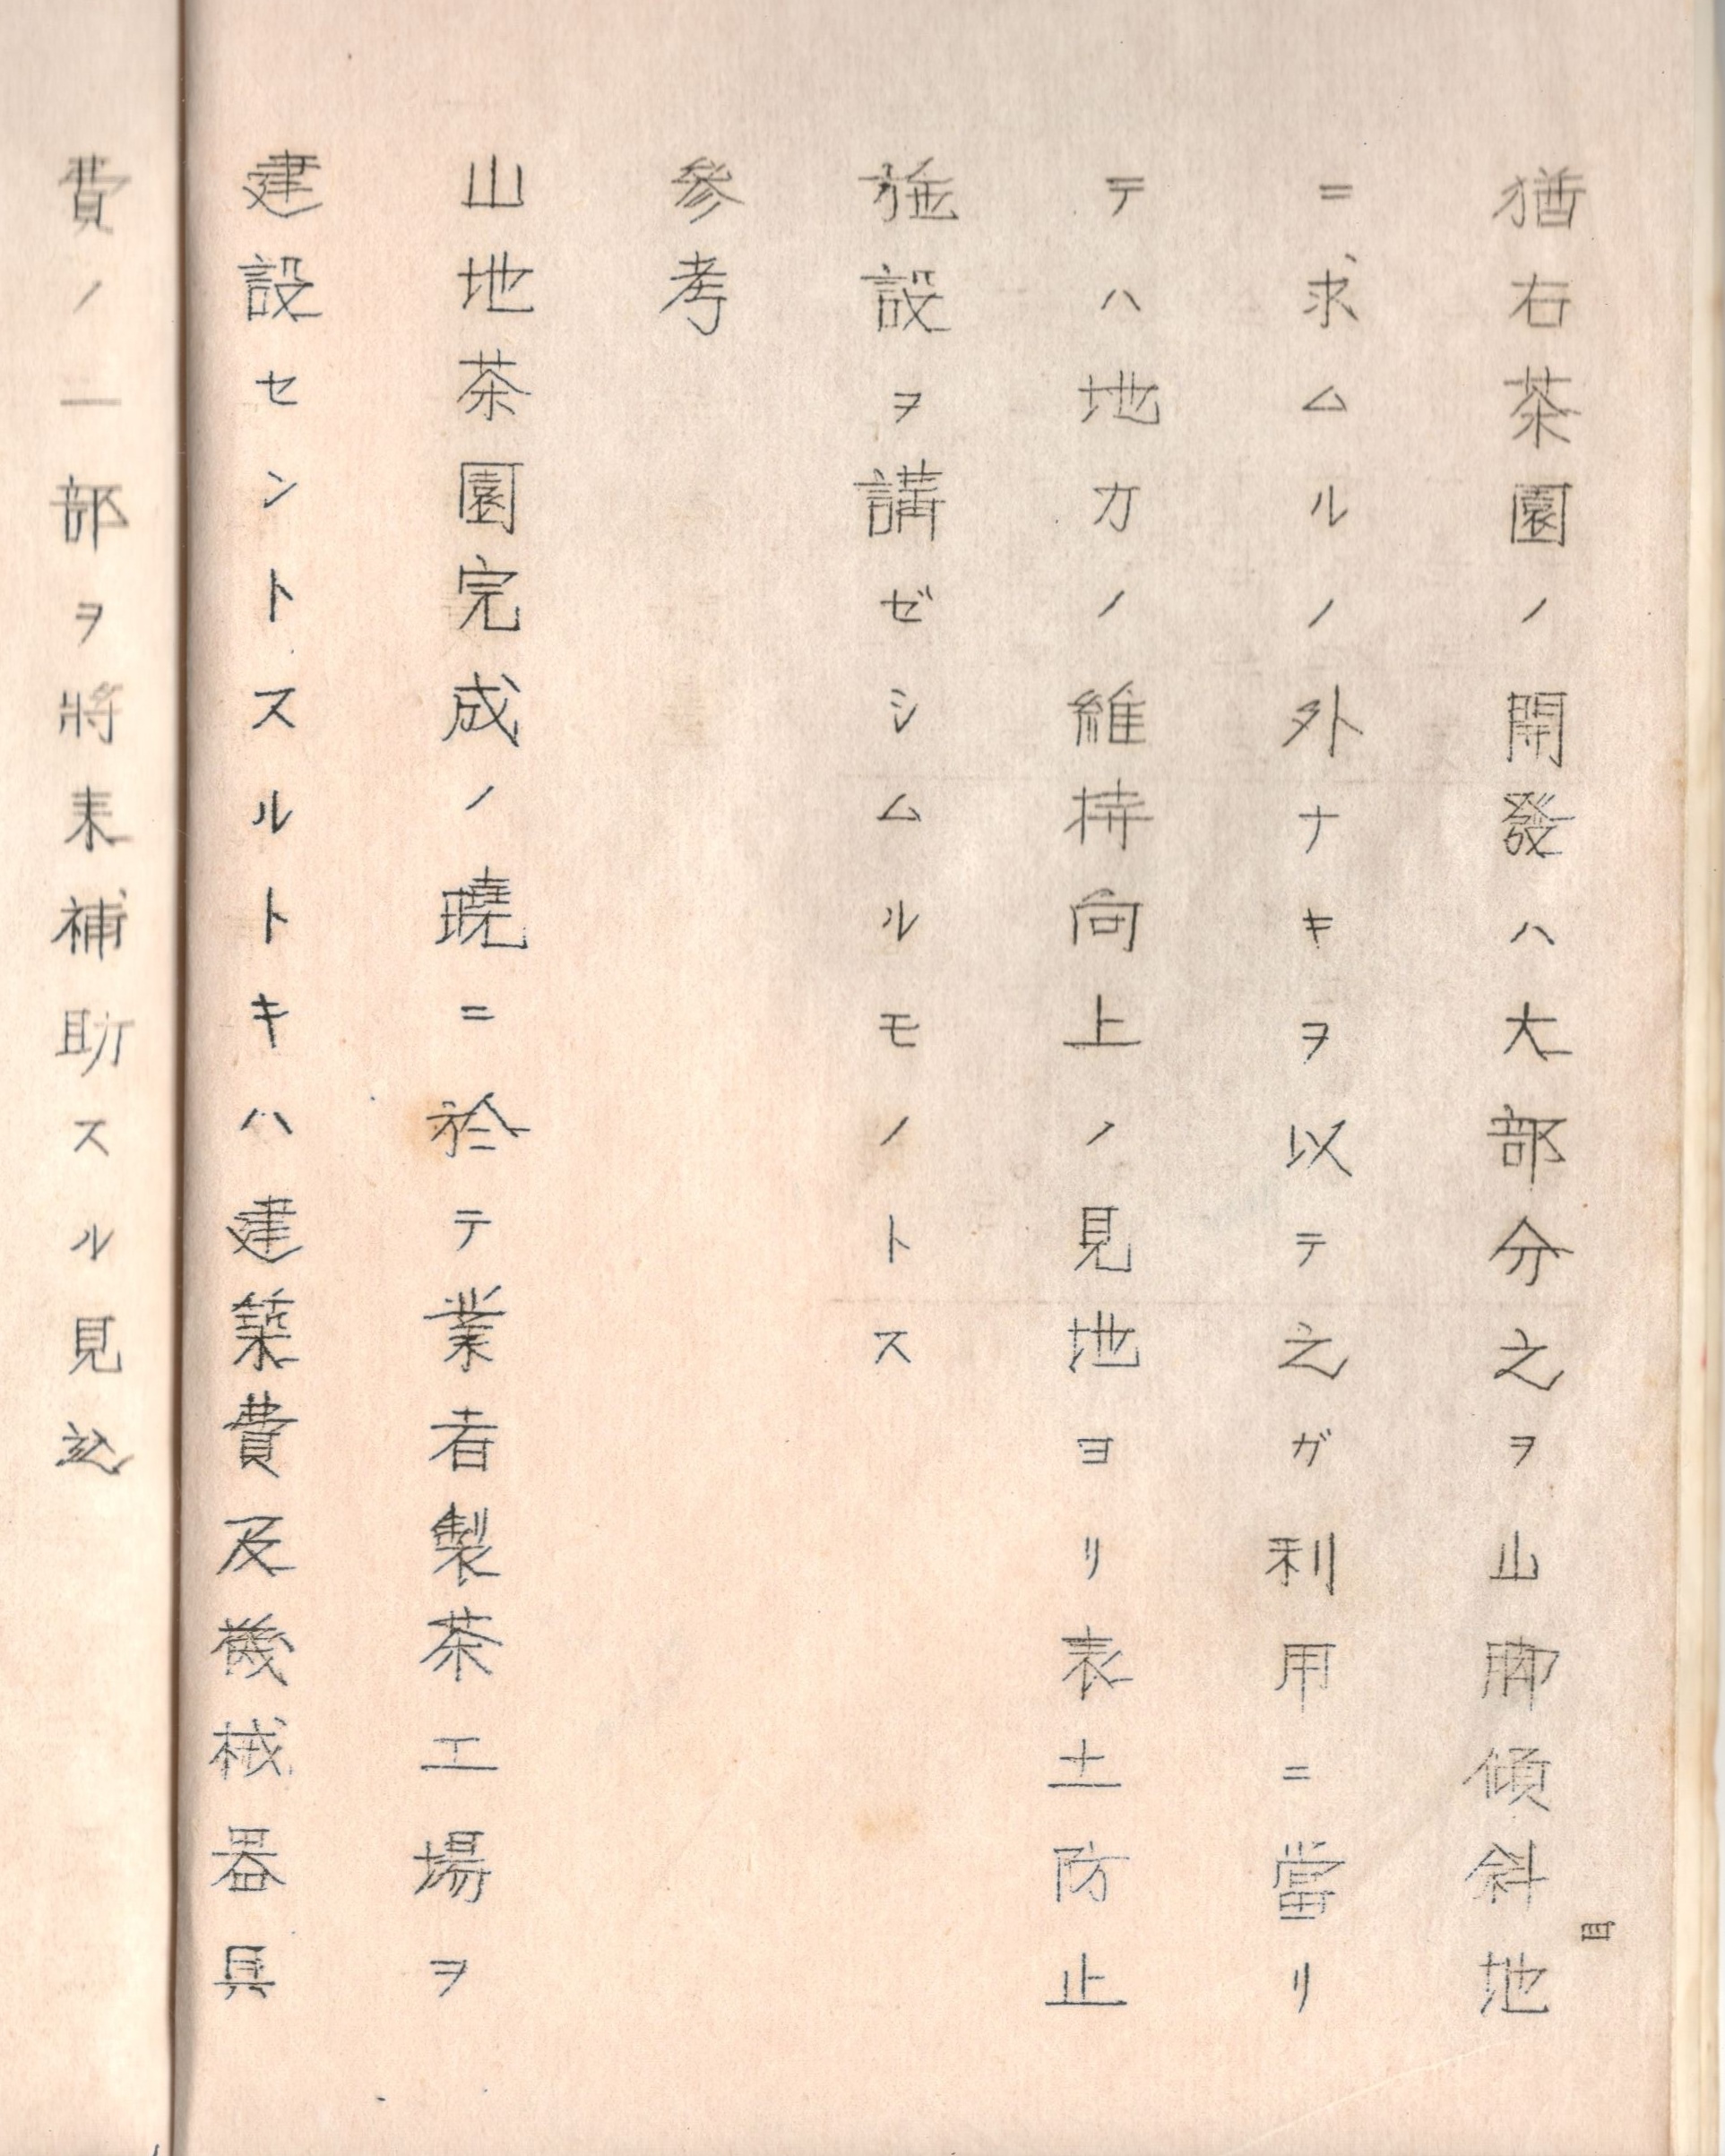 猶右茶園ノ開發ハ大部分之ヲ山脚傾斜地
ニ求ムルノ外ナキヲ以テ之ガ利用ニ當リ
テハ地力ノ維持向上ノ見地ヨリ表土防止
施設ヲ講ゼシムルモノトス
參考
山地茶園完成ノ曉ニ於テ業者製茶工場ヲ
建設セントスルトキハ建築費及機械器具
費ノ一部ヲ將来補助スル見込
四